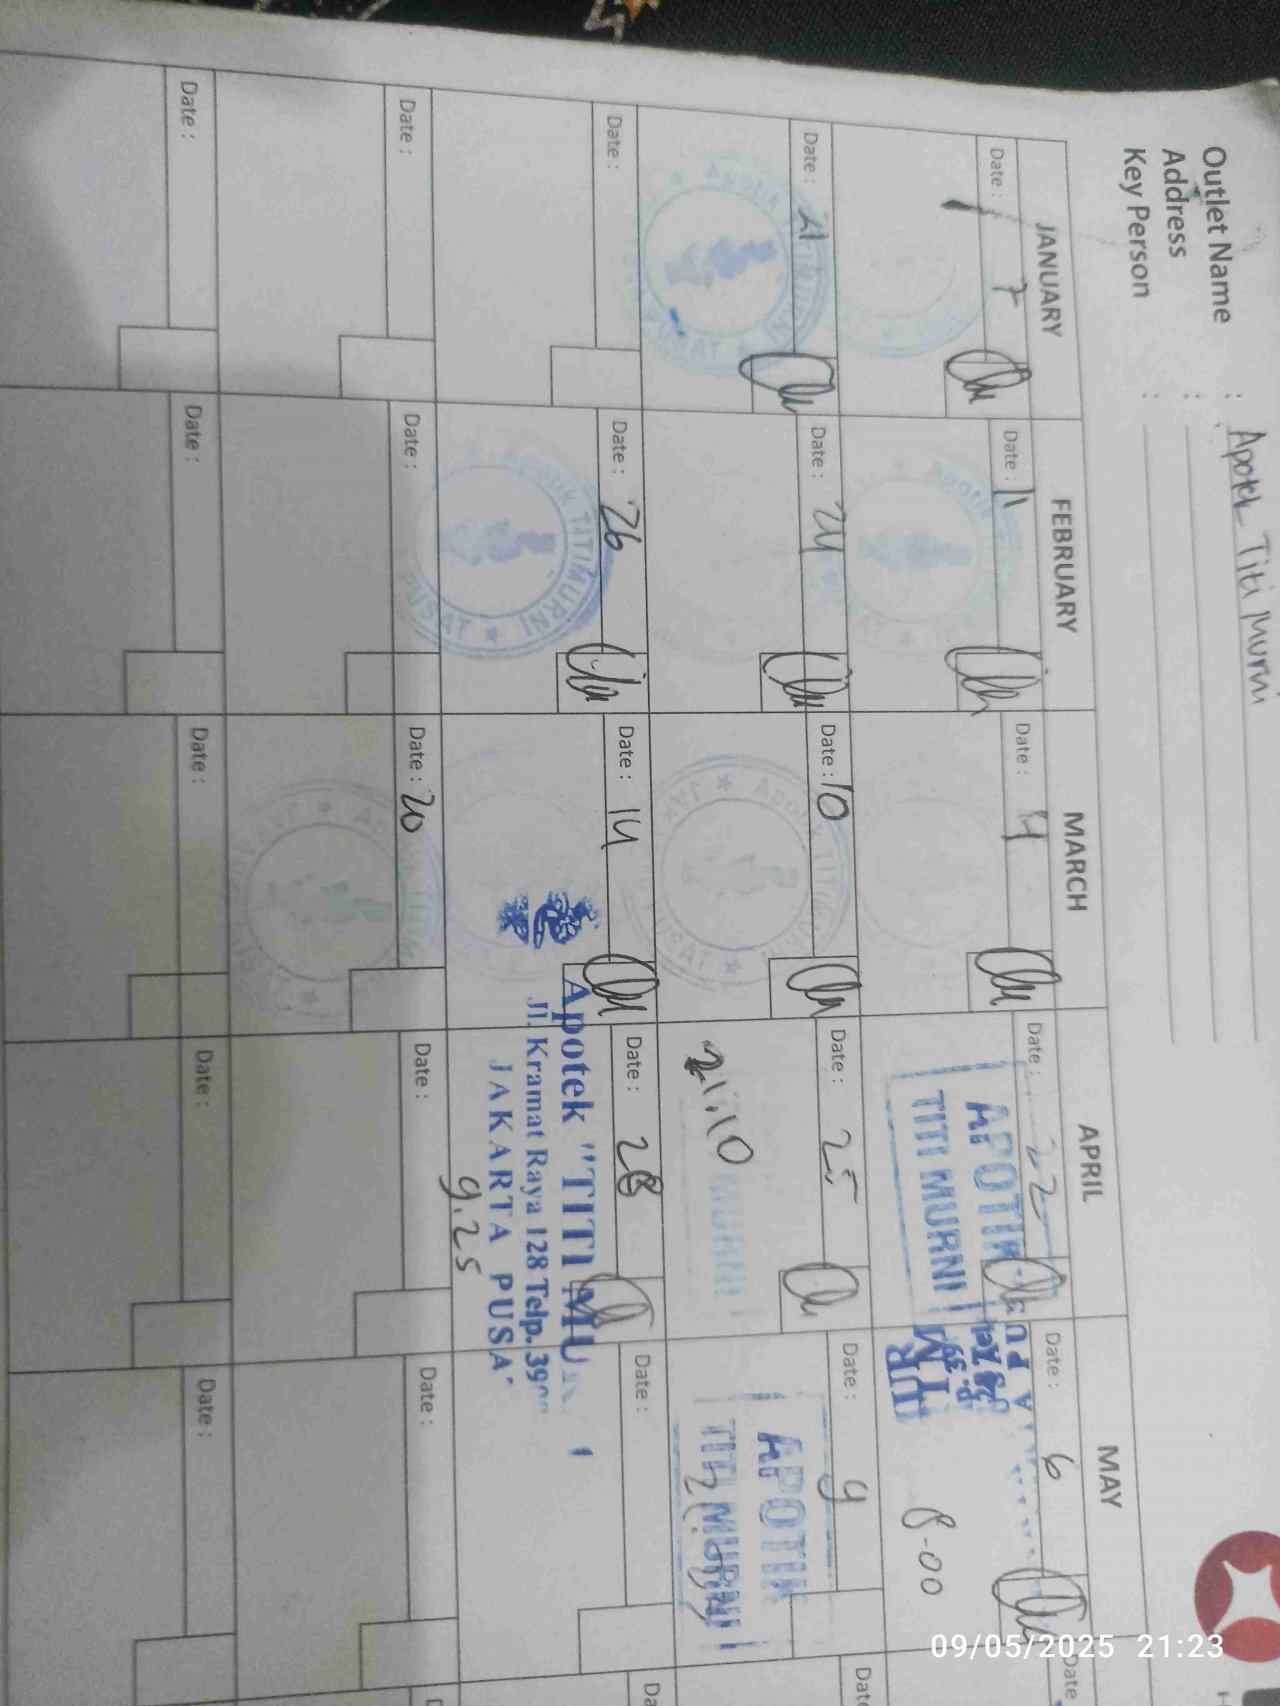 Outlet Name : Apotek Titi Murni
Address :
Key Person :
JANUARY FEBRUARY MARCH APRIL MAY
Date : 7 Date : 11 Date : 4 Date : 22 Date : 6 Date
APOTIK
TITI MURNI
8-00
Date : 21 Date : 24 Date : 10 Date : 25 Date : 9 Date
Apotik TITIMURNI
PUSAT
21.10
MURNI
APOTIK
TITI MURNI
Date : Date : 26 Date : 14 Date : 28 Date : Da
Apotik TITIMURNI
PUSAT
Apotek "TITI MU
Jl. Kramat Raya 128 Telp. 390
JAKARTA PUSA
9.25
Date : Date : Date : 20 Date : Date : D
Date : Date : Date : Date : Date :
09/05/2025 21:23